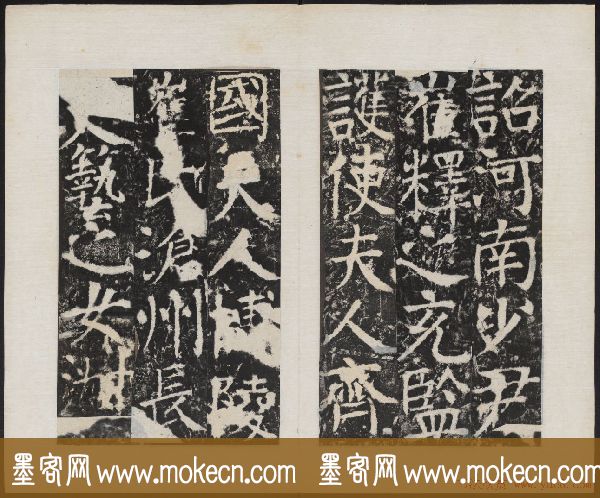 詔河南少尹
崔釋之充監
護使夫人齊
國夫人博陵
崔氏滄州長
人藝之女淑
墨客网 www.mokecn.com 墨客网 www.mokecn.com